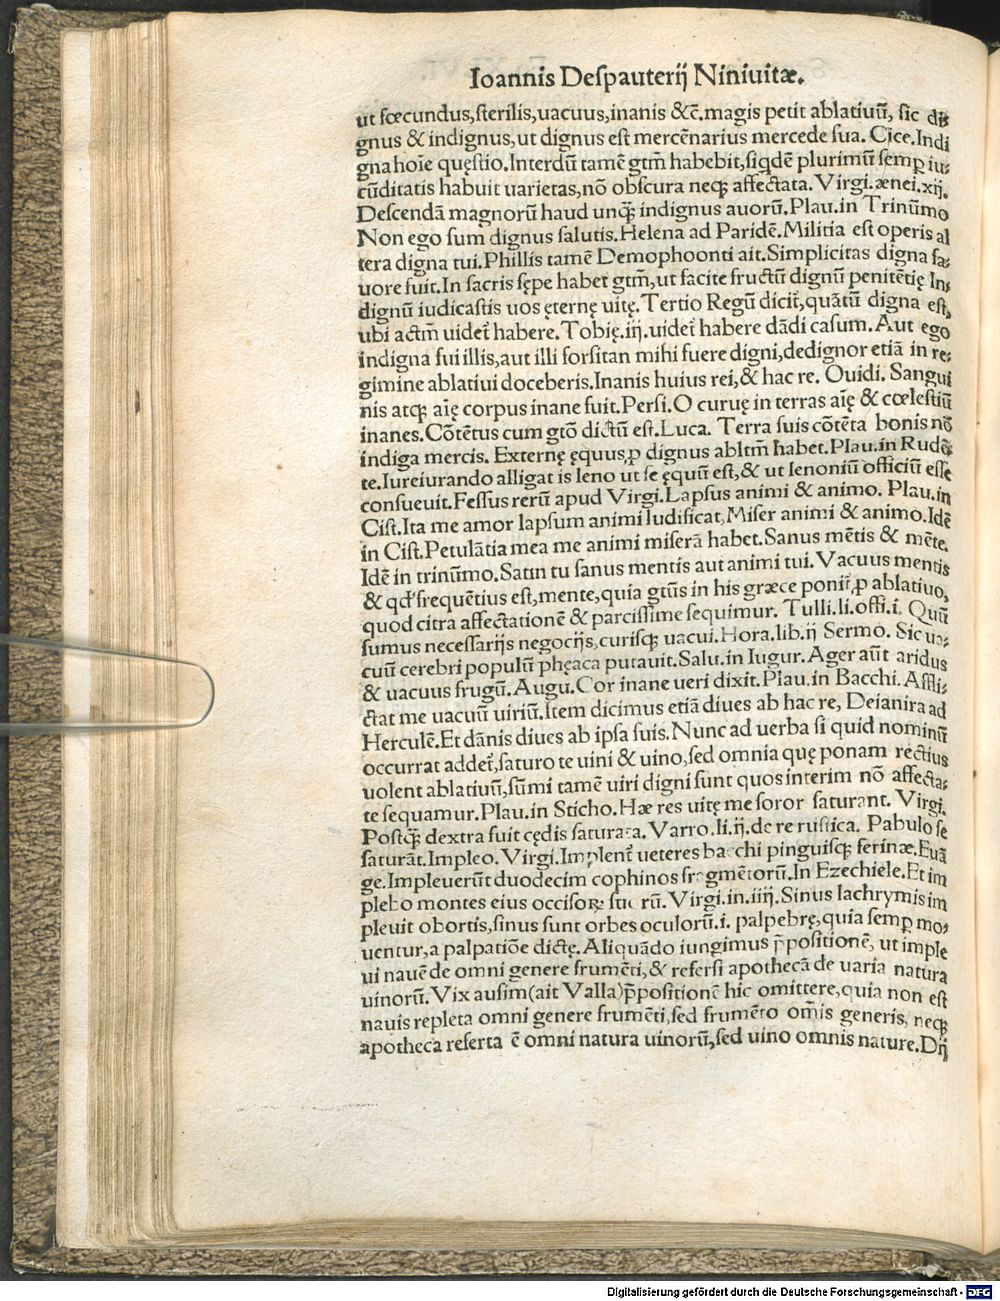 Ioannis Despauterij Niniuitæ.
ut fœcundus,sterilis,uacuus,inanis &c̄.magis petit ablatiuū, sic di
gnus & indignus,ut dignus est mercēnarius mercede sua. Cice.Indi
gna hoīe quęstio.Interdū tamē gtm̄ habebit,siqdē plurimū semp iu-
cūditatis habuit uarietas,nō obscura neqꝫ affectata. Virgi.ænei.xij.
Descendā magnorū haud unqꝫ̄ indignus auorū.Plau.in Trinūmo
Non ego sum dignus salutis.Helena ad Paridē.Militia est operis al
tera digna tui.Phillis tamē Demophoonti ait.Simplicitas digna fa-
uore fuit.In sacris sępe habet gtm̄,ut facite fructū dignū penitētię In-
dignū iudicastis uos ęternę uitę.Tertio Regū dicit̄,quātū digna est,
ubi actm̄ uidet̄ habere.Tobię.iij.uidet̄ habere dādi casum.Aut ego
indigna fui illis,aut illi forsitan mihi fuere digni,dedignor etiā in re-
gimine ablatiui doceberis.Inanis huius rei,& hac re. Ouidi. Sangui
nis atqꝫ aīę corpus inane fuit.Persi.O curuę in terras aīę & cœlestiū
inanes.Cōtētus cum gtō dictū est.Luca. Terra suis cōtēta bonis nō
indiga mercis. Externę ęquus,ꝓ dignus abltm̄ habet.Plau.in Rudē-
te.Iureiurando alligat is leno ut se ęquū est,& ut lenoniū officiū esse
consueuit.Fessus rerū apud Virgi.Lapsus animi & animo. Plau.in
Cist.Ita me amor lapsum animi ludificat,Miser animi & animo.Idē
in Cist.Petulātia mea me animi miserā habet.Sanus mētis & mēte.
Idē in trinūmo.Satin tu sanus mentis aut animi tui.Vacuus mentis
& qd' frequētius est,mente,quia gtūs in his græce ponit̄ ꝓ ablatiuo,
quod citra affectationē & parcissime sequimur. Tulli.li.offi.i. Quū
sumus necessarijs negocijs,curisqꝫ uacui.Hora.lib.ij Sermo. Sic ua-
cuū cerebri populū phęaca putauit.Salu.in Iugur.Ager aūt aridus
& uacuus frugū.Augu.Cor inane ueri dixit.Plau.in Bacchi.Affli-
ctat me uacuū uiriū.Item dicimus etiā diues ab hac re, Deianira ad
Herculē.Et dānis diues ab ipsa suis.Nunc ad uerba si quid nominū
occurrat addet̄,saturo te uini & uino,sed omnia quę ponam rectius
uolent ablatiuū,sūmi tamē uiri digni sunt quos interim nō affecta-
te sequamur.Plau.in Sticho.Hæ res uitę me soror saturant. Virgi.
Postqꝫ̄ dextra fuit cędis saturata. Varro.li.ij.de re rustica. Pabulo se
saturāt.Impleo.Virgi.Implent̄ ueteres bacchi pinguisqꝫ ferinæ.Euā
ge.Impleuerūt duodecim cophinos fragmētorū.In Ezechiele.Et im
plebo montes eius occisoꝝ suorū. Virgi.in.iiij.Sinus lachrymis im
pleuit obortis,sinus sunt orbes oculorū.i. palpebrę,quia semp mo-
uentur,a palpatiōe dictę.Aliquādo iungimus p̄positionē, ut imple
ui nauē de omni genere frumēti,& refersi apothecā de uaria natura
uinorū.Vix ausim(ait Valla)p̄positionē hic omittere,quia non est
nauis repleta omni genere frumēti,sed frumēto om̄is generis, neqꝫ
apotheca referta ē omni natura uinorū,sed uino omnis nature.Dij
Digitalisierung gefördert durch die Deutsche Forschungsgemeinschaft - DFG